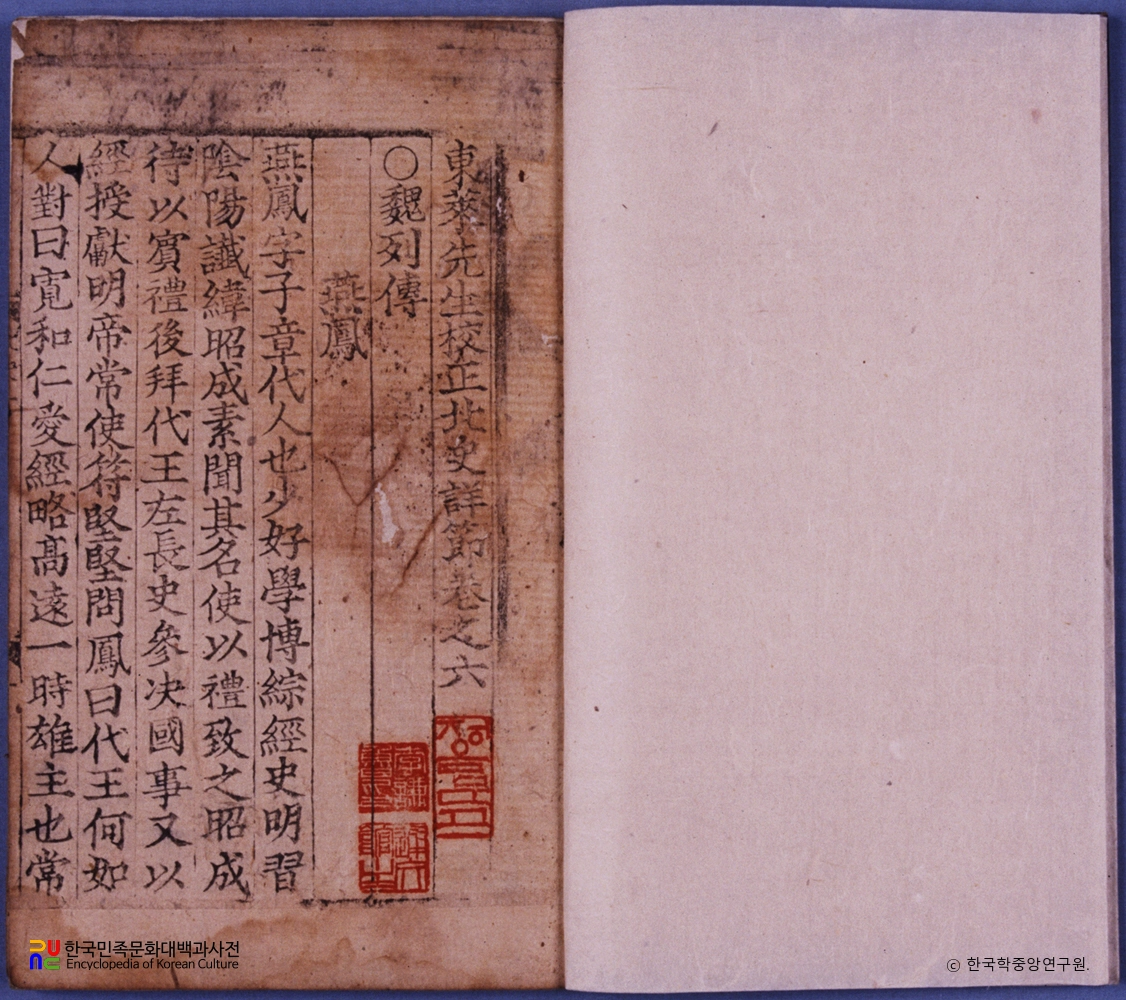 東萊先生校正北史詳節卷之六
○魏列傳
燕鳳
燕鳳字子章代人也少好學博綜經史明習
陰陽讖緯昭成素聞其名使以禮致之昭成
待以賓禮後拜代王左長史參决國事又以
經授獻明帝常使符堅堅問鳳曰代王何如
人對曰寬和仁愛經略高遠一時雄主也常
한국민족문화대백과사전
Encyclopedia of Korean Culture
ⓒ 한국학중앙연구원.